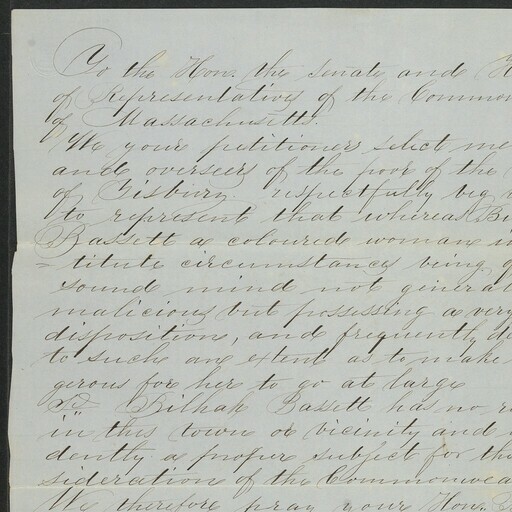 To the Hon. the Senate and H
of Representatives of the Common
of Massachusetts.
We your petitioners select me
and overseers of the poor of the
of Tisbury. respectfully beg
to represent that whereas Bi
Bassett a coloured woman in
= titute circumstances being
sound mind not general
malicious but possessing a very
disposition, and frequently de
to such an extent as to make
gerous for her to go at large
Sd. Bilhah Bassett has no
in this town or vicinity and
dently a proper subject for the
sideration of the Commonwea
We therefore pray your Hon.